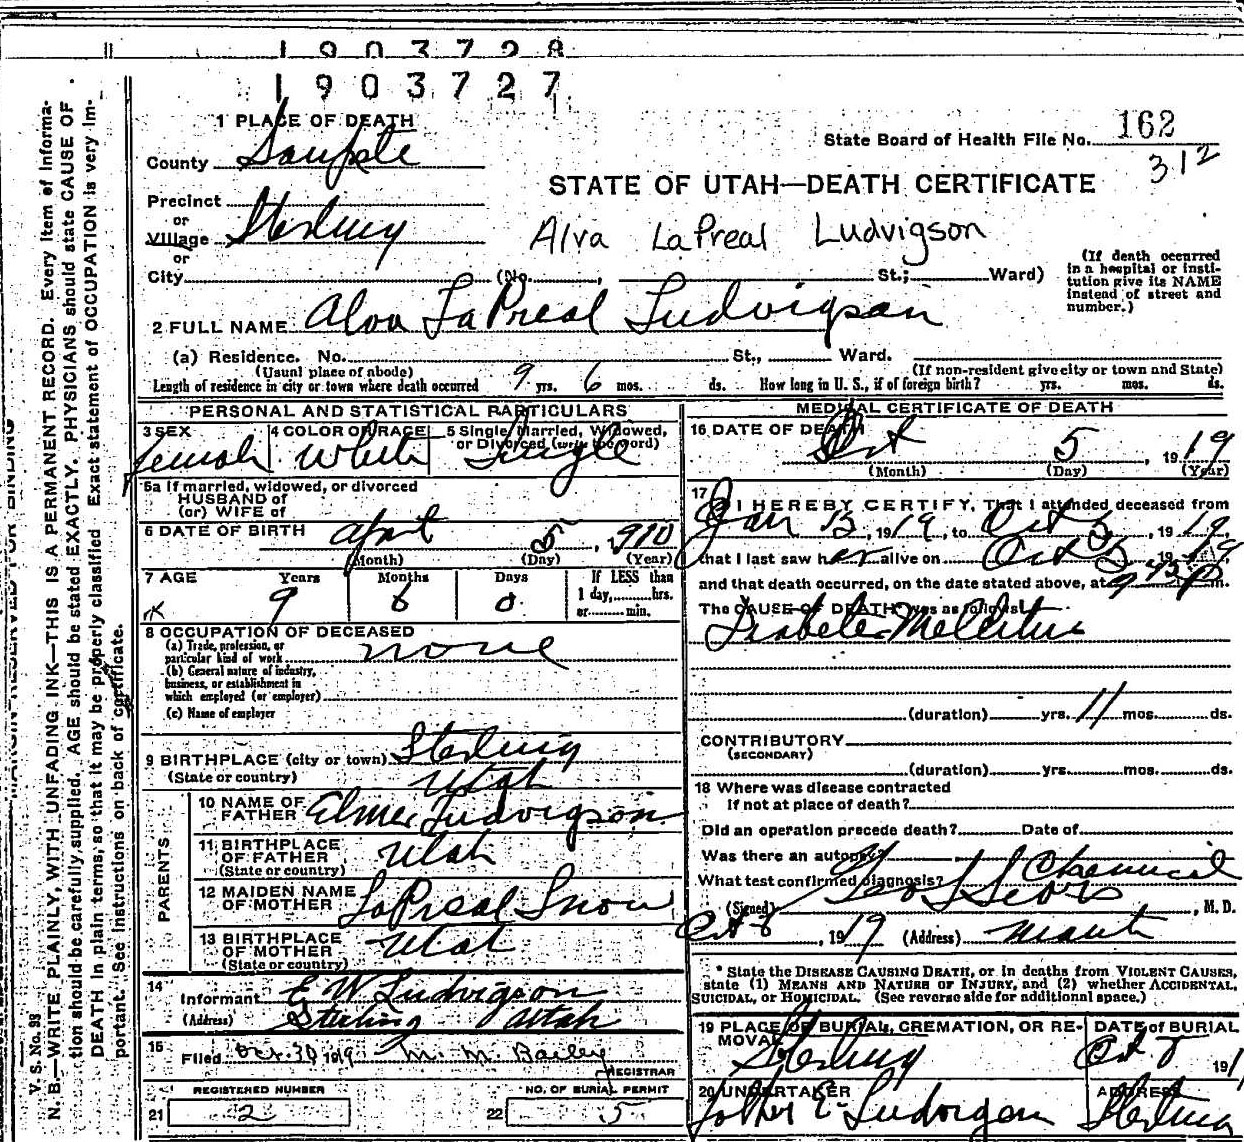 1903728
1903727
1 PLACE OF DEATH
County Sanpete
State Board of Health File No. 162
312
STATE OF UTAH—DEATH CERTIFICATE
Precinct
or
Village Sterling
or
Alva LaPreal Ludvigson
City (No. , St.; Ward)
(If death occurred in a hospital or institution give its NAME instead of street and number.)
2 FULL NAME Alva LaPreal Ludvigson
(a) Residence. No. St., Ward.
(Usual place of abode) (If non-resident give city or town and State)
Length of residence in city or town where death occurred 9 yrs. 6 mos. ds. How long in U. S., if of foreign birth? yrs. mos. ds.
PERSONAL AND STATISTICAL PARTICULARS
3 SEX female
4 COLOR OR RACE White
5 Single, Married, Widowed, or Divorced (write the word) Single
5a If married, widowed, or divorced
HUSBAND of
(or) WIFE of
6 DATE OF BIRTH April 5, 1910
(Month) (Day) (Year)
7 AGE Years Months Days If LESS than
9 6 0 1 day, hrs.
or min.
8 OCCUPATION OF DECEASED
(a) Trade, profession, or
particular kind of work none
(b) General nature of industry,
business, or establishment in
which employed (or employer)
(c) Name of employer
9 BIRTHPLACE (city or town) Sterling
(State or country) Utah
PARENTS
10 NAME OF FATHER Elmer Ludvigson
11 BIRTHPLACE OF FATHER Utah
(State or country)
12 MAIDEN NAME OF MOTHER LaPreal Snow
13 BIRTHPLACE OF MOTHER Utah
(State or country)
14
Informant E W Ludvigson
(Address) Sterling Utah
15
Filed Oct. 30 1919 M. M. Bailey
REGISTRAR
REGISTERED NUMBER
21 2
NO. OF BURIAL PERMIT
22 5
MEDICAL CERTIFICATE OF DEATH
16 DATE OF DEATH Oct 5, 1919
(Month) (Day) (Year)
17
I HEREBY CERTIFY, That I attended deceased from
Jan 13, 1919, to Oct 5, 1919,
that I last saw her alive on Oct 5, 1919
and that death occurred, on the date stated above, at 9 45 P m.
The CAUSE OF DEATH was as follows:
Diabetes Mellitus
(duration) yrs. 11 mos. ds.
CONTRIBUTORY
(SECONDARY)
(duration) yrs. mos. ds.
18 Where was disease contracted
if not at place of death?
Did an operation precede death? Date of
Was there an autopsy?
What test confirmed diagnosis? Chemical
(Signed) Geo L Sears, M. D.
Oct 8, 1919 (Address) Manti
* State the DISEASE CAUSING DEATH, or in deaths from VIOLENT CAUSES,
state (1) MEANS AND NATURE OF INJURY, and (2) whether ACCIDENTAL,
SUICIDAL, or HOMICIDAL. (See reverse side for additional space.)
19 PLACE OF BURIAL, CREMATION, OR REMOVAL Sterling
DATE of BURIAL Oct 8 191
20 UNDERTAKER
ADDRESS
Ludvigson Sterling
V. S. No. 93
MARGIN RESERVED FOR BINDING
N. B.—WRITE PLAINLY, WITH UNFADING INK—THIS IS A PERMANENT RECORD. Every item of informa-
tion should be carefully supplied. AGE should be stated EXACTLY. PHYSICIANS should state CAUSE OF
DEATH in plain terms, so that it may be properly classified Exact statement of OCCUPATION is very im-
portant. See instructions on back of certificate.